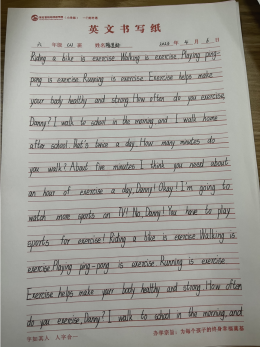 英文书写纸
六 年级 班 姓名 年 月 日
Riding a bike is exercise Walking is exercise. Playing ping-
pong is exercise Running is exercise Exercise helps make
your body healthy and strong How often do you exercise
Danny? I walk to school in the morning and I walk home
after school that's twice a day. How many minutes do
you walk? About five minutes I think you need about
an hour of exercise a day, Danny! Okay! I'm going to
watch more sports on TV! No, Danny! You have to play
sports for exercise! Riding a bike is exercise Walking is
exercise Playing ping-pong is exercise Running is exercise
Exercise helps make your body healthy and strong How often
do you exercise, Danny? I walk to school in the morning, and
字如其人 人字合一
办学宗旨:为每个孩子的终身幸福奠基